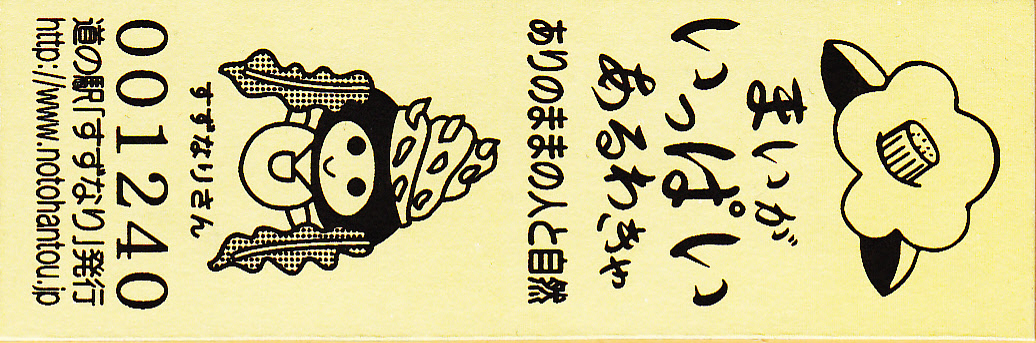 まいが
いっぱい
あるわきゃ
ありのままの人と自然
すずなりさん
001240
道の駅「すずなり」発行
http://www.notohantou.jp